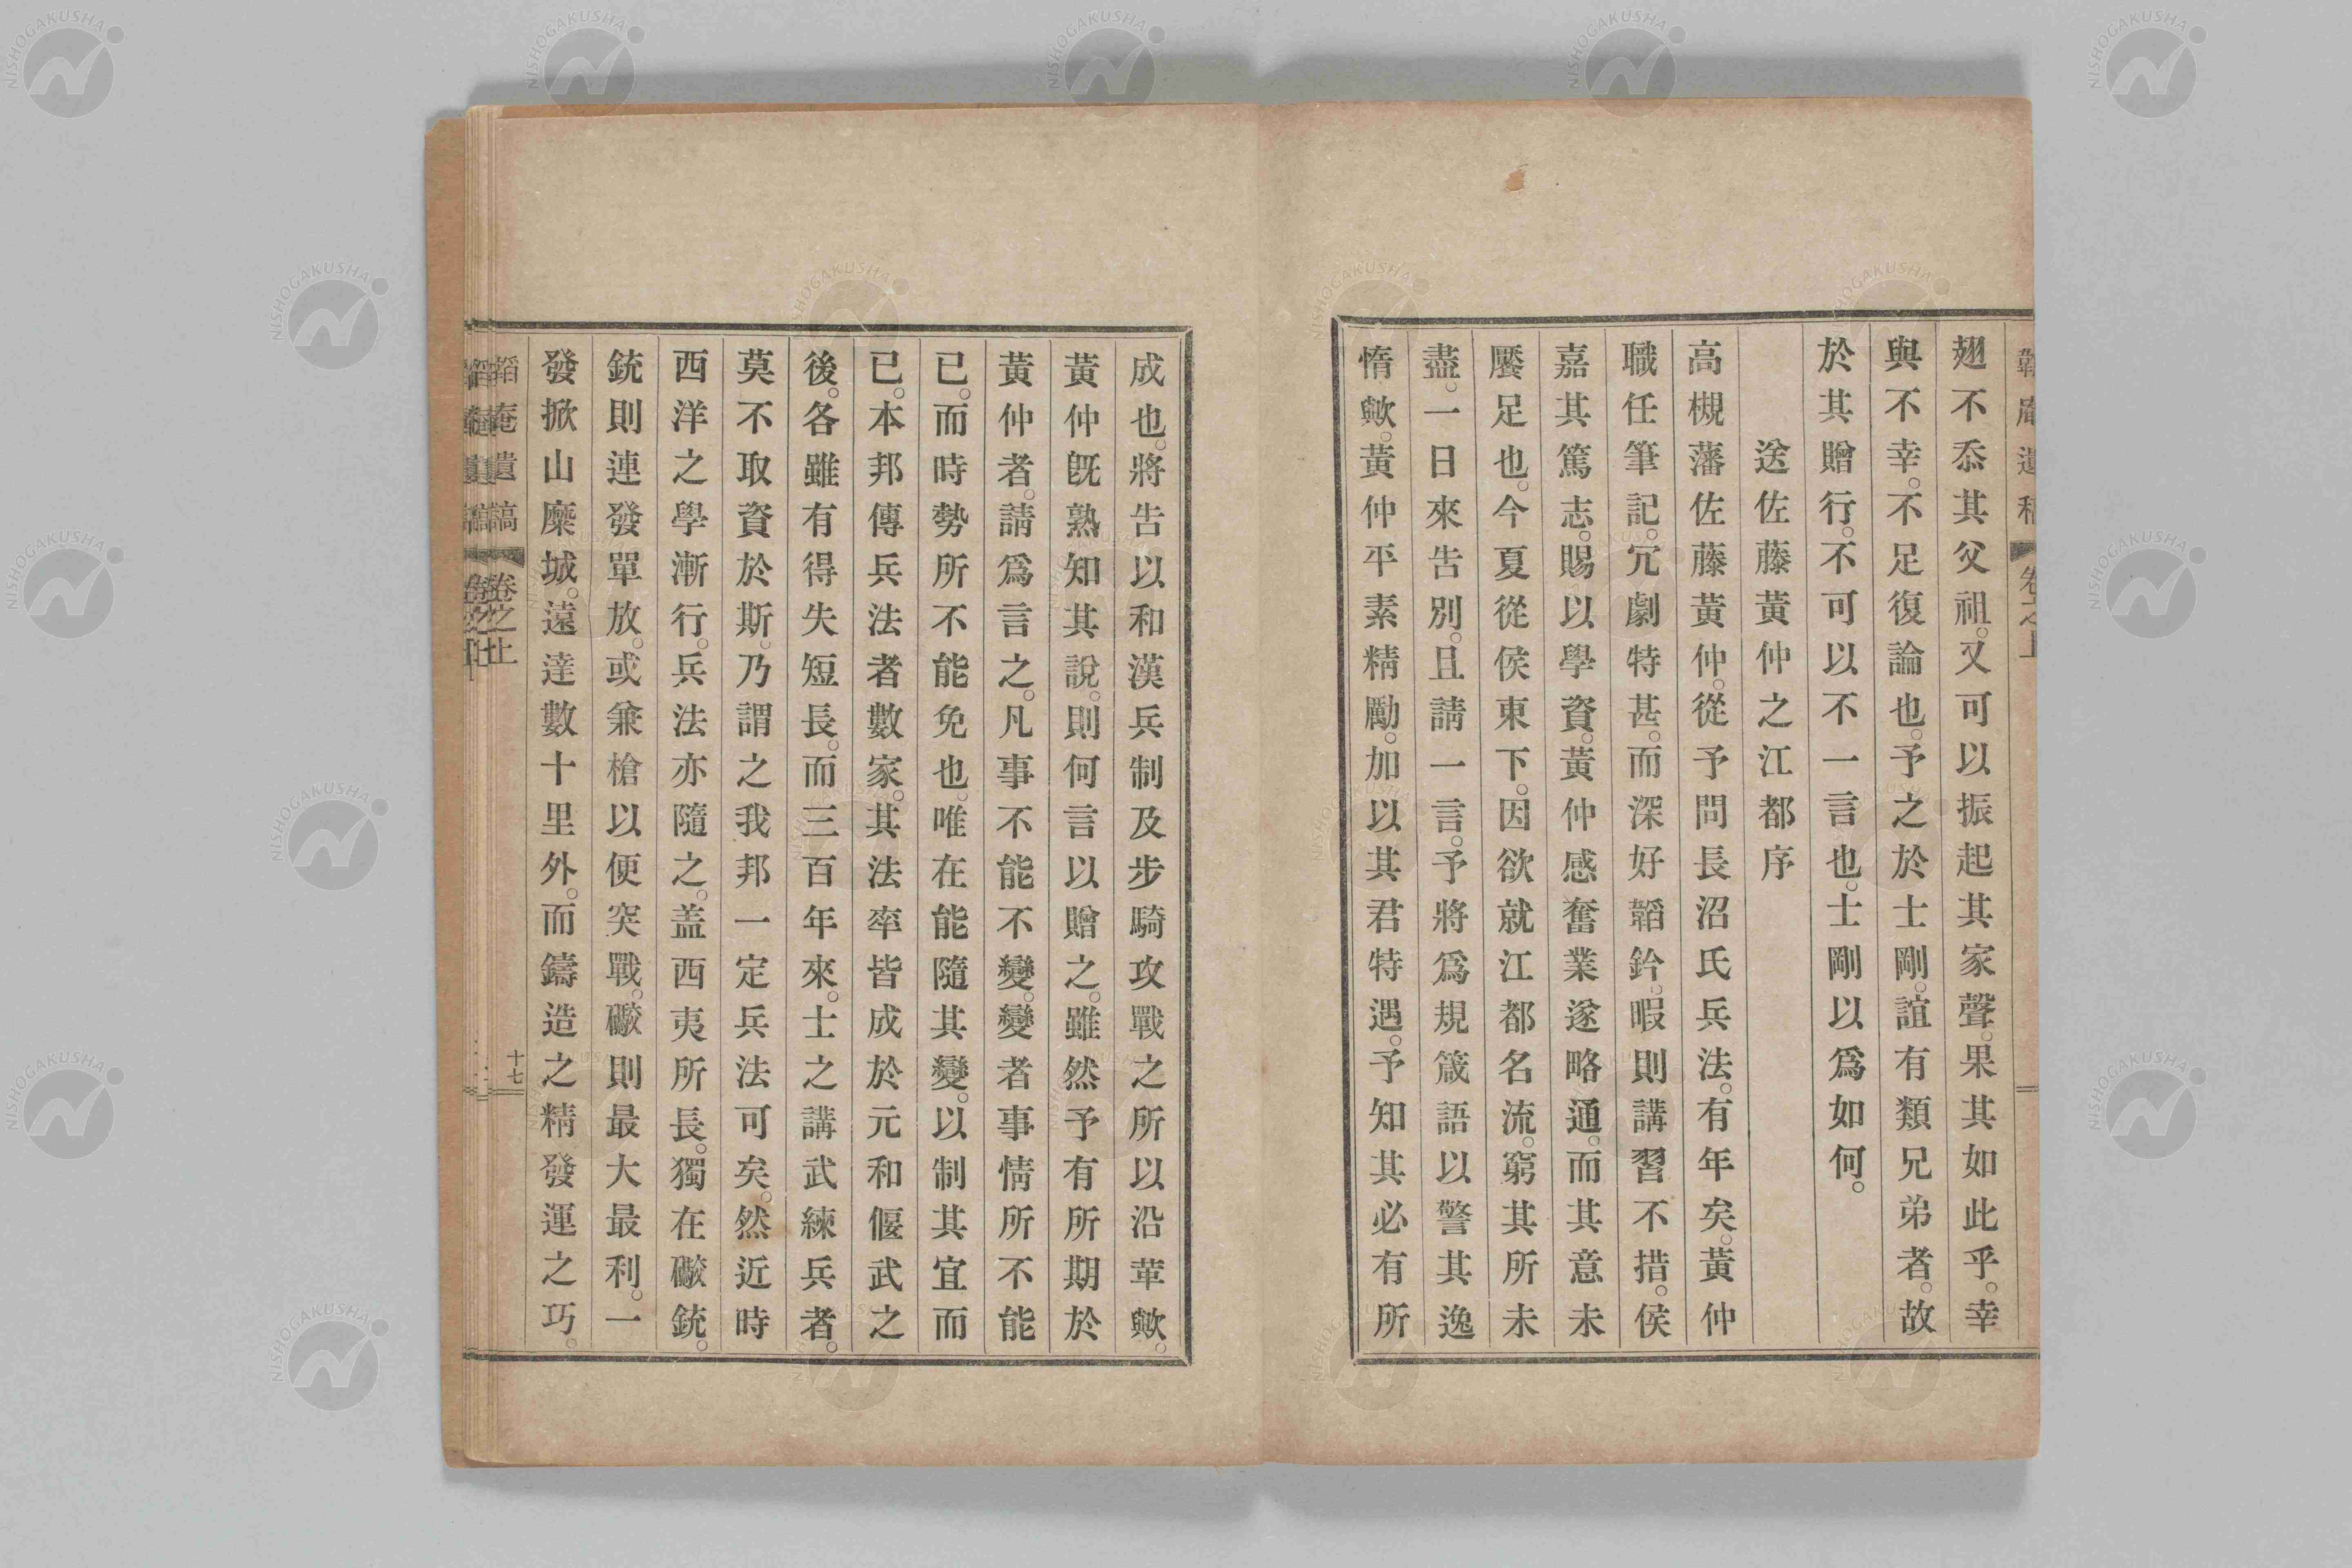 翅不忝其父祖。又可以振起其家聲。果其如此乎。幸
與不幸。不足復論也。予之於士剛。誼有類兄弟者。故
於其贈行。不可以不一言也。士剛以爲如何。
送佐藤黃仲之江都序
高槻藩佐藤黃仲。從予問長沼氏兵法。有年矣。黃仲
職任筆記。冗劇特甚。而深好韜鈐。暇則講習不措。侯
嘉其篤志。賜以學資。黃仲感奮業遂略通。而其意未
饜足也。今夏從侯東下。因欲就江都名流。窮其所未
盡。一日來告別。且請一言。予將爲規箴語以警其逸
惰歟。黃仲平素精勵。加以其君特遇。予知其必有所
成也。將告以和漢兵制及步騎攻戰之所以沿革歟。
黃仲旣熟知其說。則何言以贈之。雖然予有所期於
黃仲者。請爲言之。凡事不能不變。變者事情所不能
已。而時勢所不能免也。唯在能隨其變。以制其宜而
已。本邦傳兵法者數家。其法率皆成於元和偃武之
後。各雖有得失短長。而三百年來。士之講武練兵者。
莫不取資於斯。乃謂之我邦一定兵法可矣。然近時
西洋之學漸行。兵法亦隨之。蓋西夷所長。獨在礮銃。
銃則連發單放。或兼槍以便突戰。礮則最大最利。一
發掀山糜城。遠達數十里外。而鑄造之精發運之巧。
韜庵遺稿 卷之上 十七